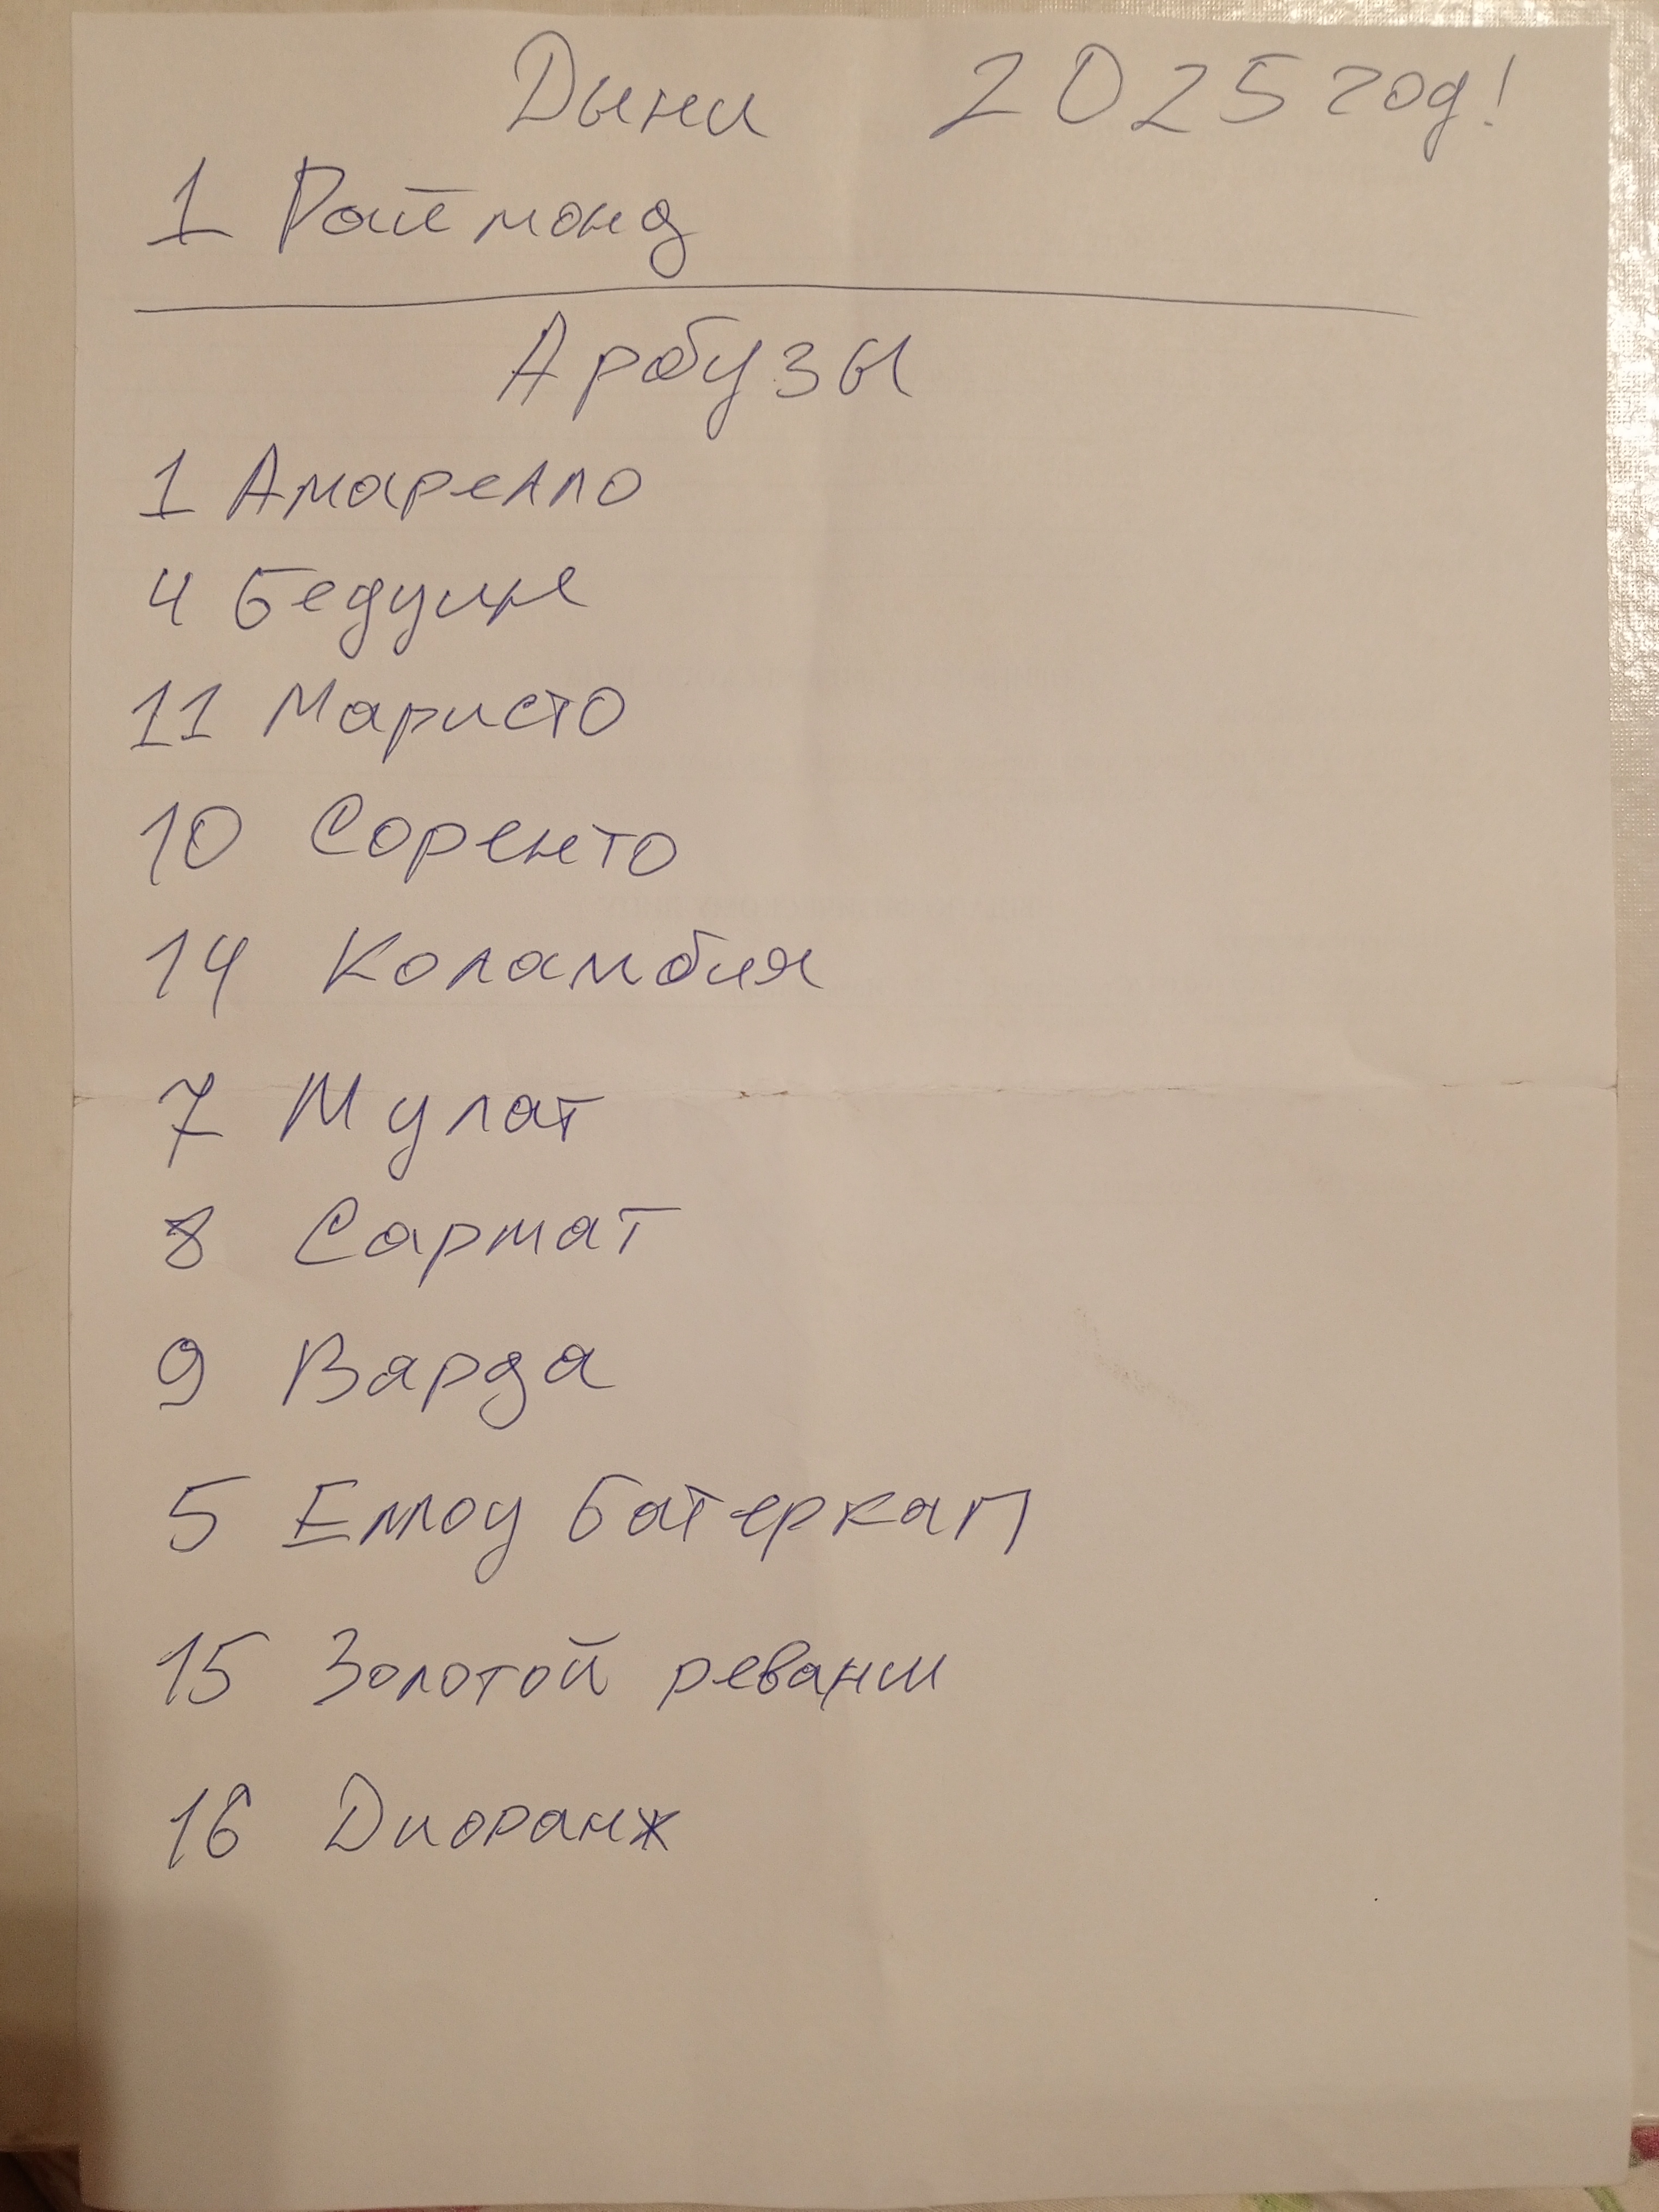 Дыни 2025 год!
1 Раймонд
Арбузы
1 Амарелло
4 Бедуин
11 Маристо
10 Соренто
14 Коламбия
7 Мулат
8 Сармат
9 Варда
5 Еллоу батеркап
15 Золотой реванш
16 Диоранж